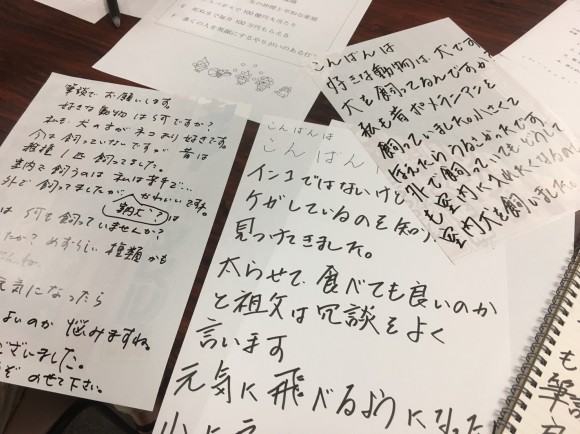 で100億円大当たり
死ぬまで毎月100万円もらえる
多くの人を笑顔にするやりがいのある仕
筆談でお願いします。
好きな動物は何ですか?
私も犬の方がネコより好きです。
今は飼っていないですが昔は
雑種1匹飼ってました。
室内で飼うのは私は苦手で…
外で飼ってましたが、かわいいですね。
鞆で?は
は何を飼っていませんか?
たか?めずらしい種類かも
元気になったら
よいのか悩みますね。
ございました。
のせて下さい。
こんばんは
こんばん
インコではないけど
ケガしているのを知
見つけてきました。
太らせて、食べても良いのか
と祖父は冗談をよく
言います
元気に飛べるようになった
こんばんは
好きな動物は、犬です
犬を飼ってるんですか
私も昔ポメラニアンを
飼っていました。小さくて
ほえたらうるさかったです。
外で飼っていてもどうして
も室内に入れたくなるので
室内犬を飼いました。
も
筆談